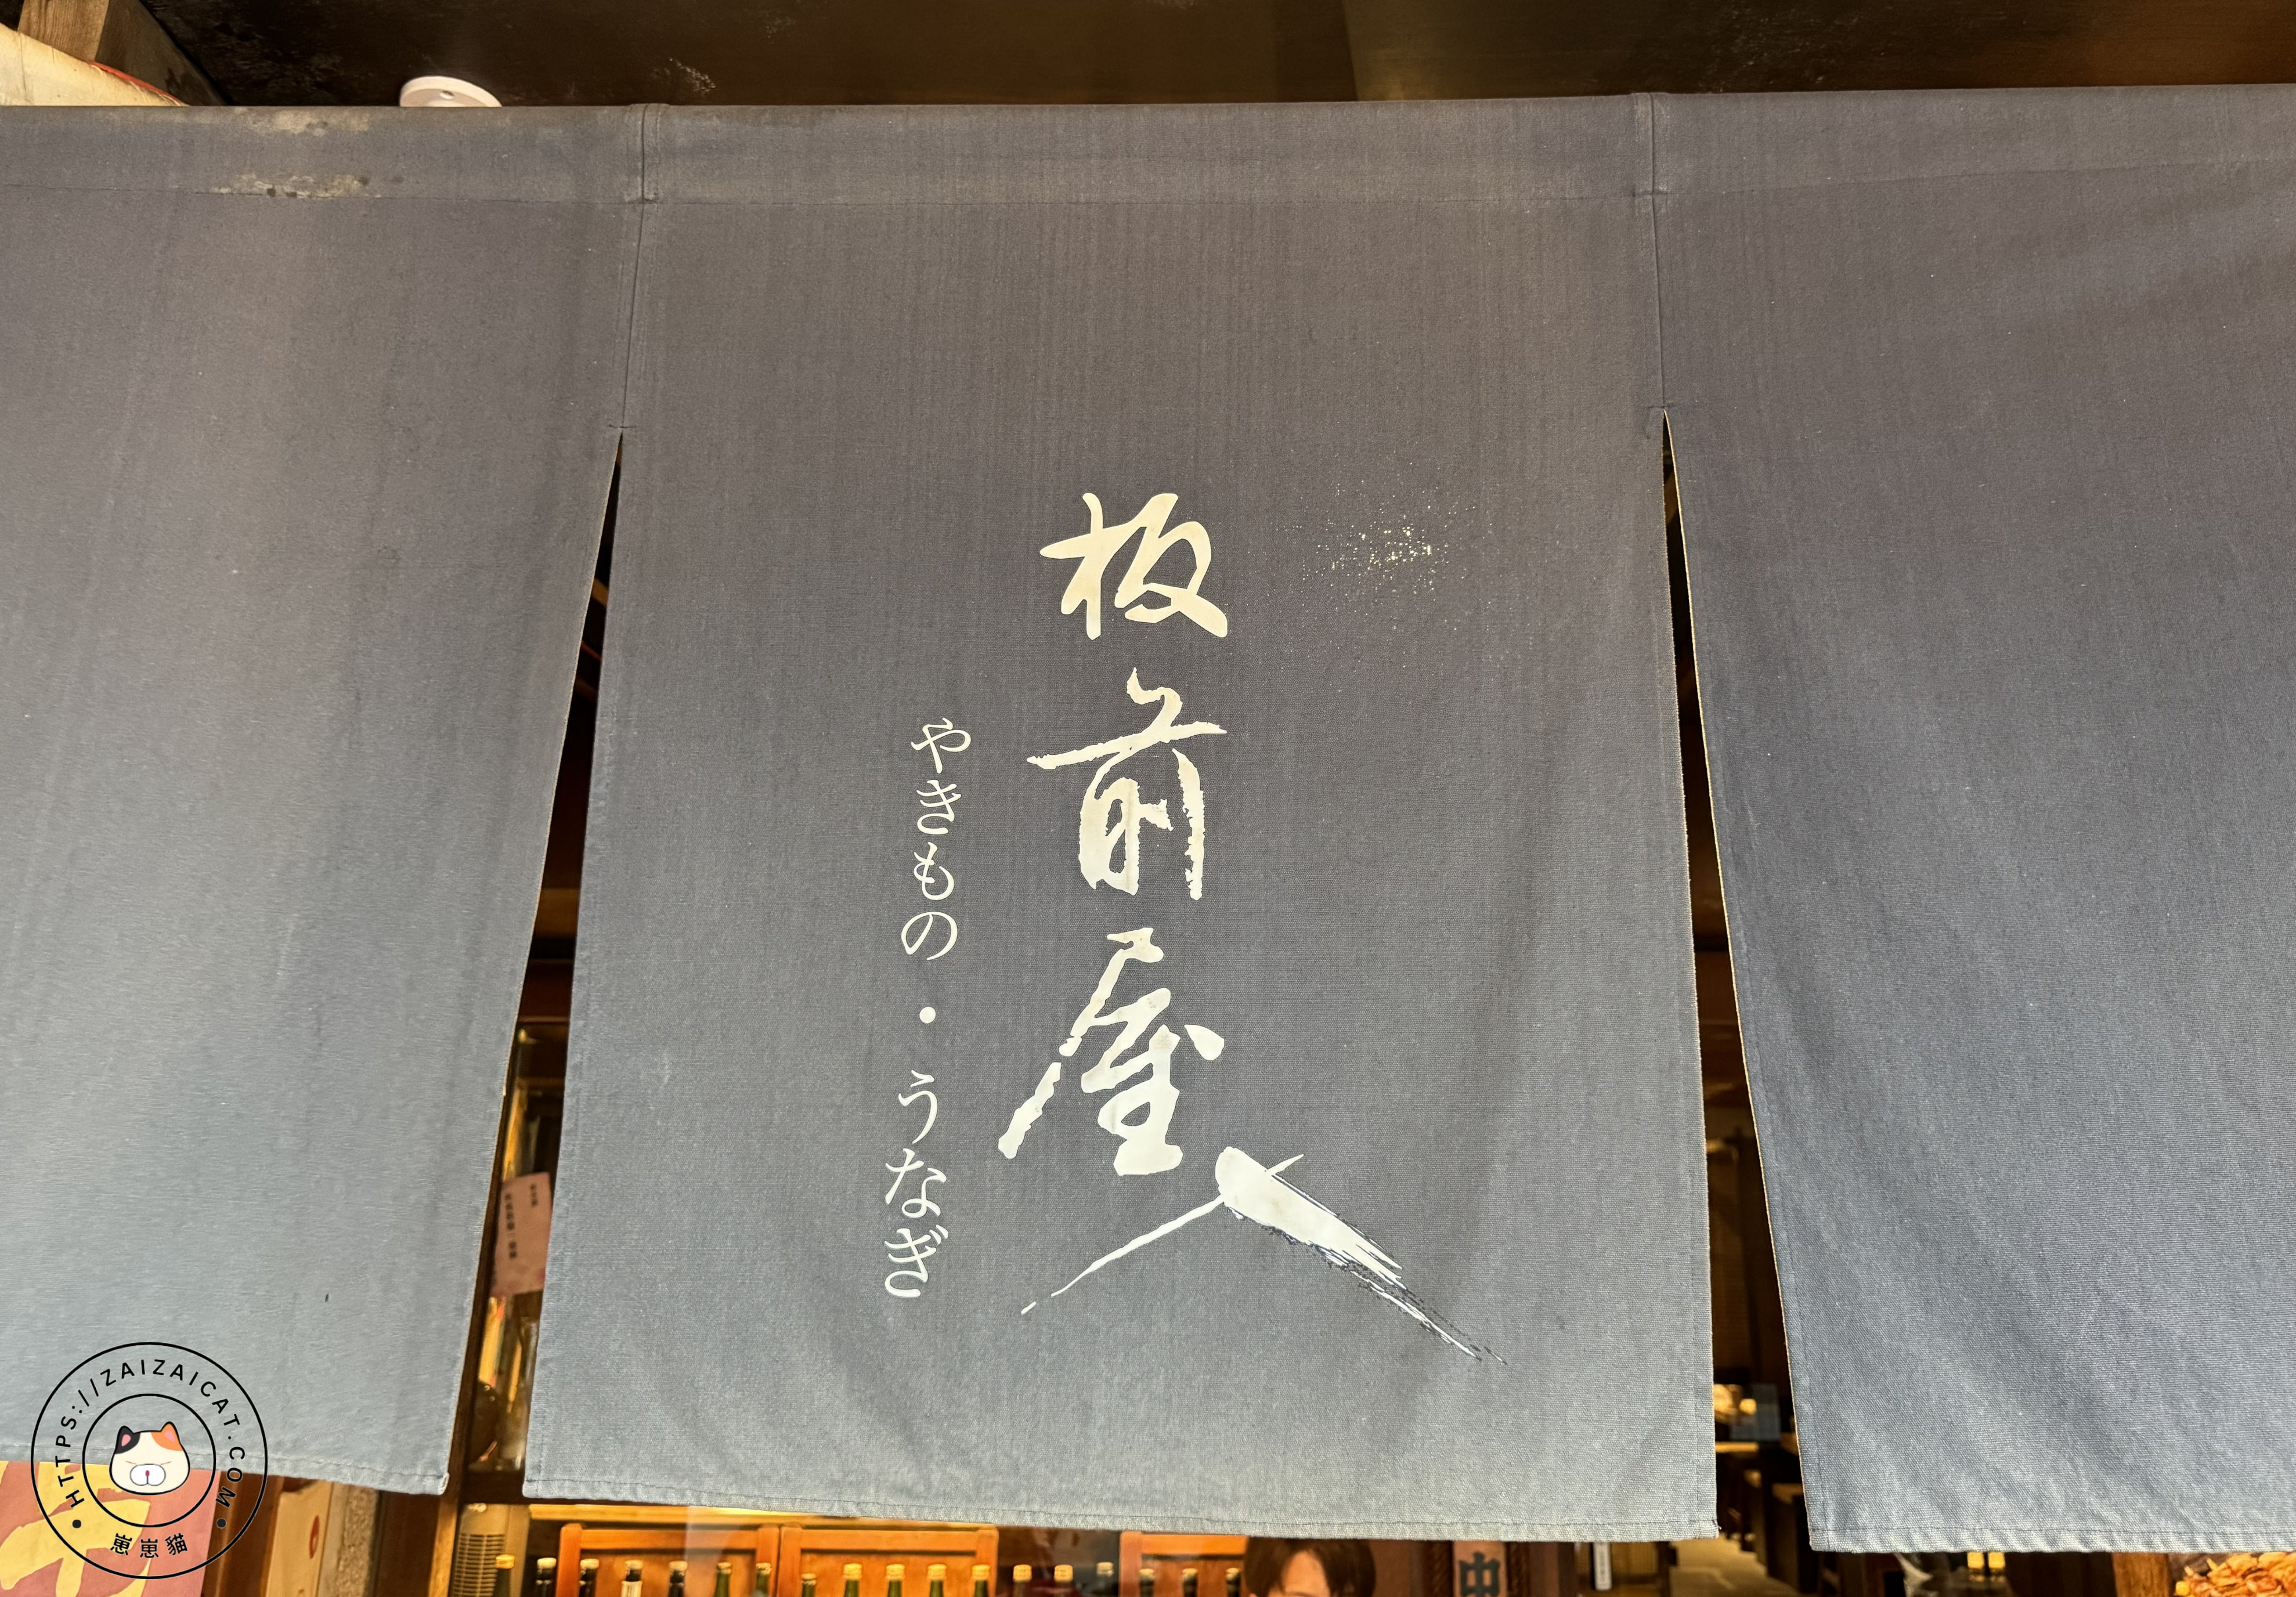 板前屋
やきもの・うなぎ
中
HTTPS://ZAIZAICAT.COM
崽崽貓